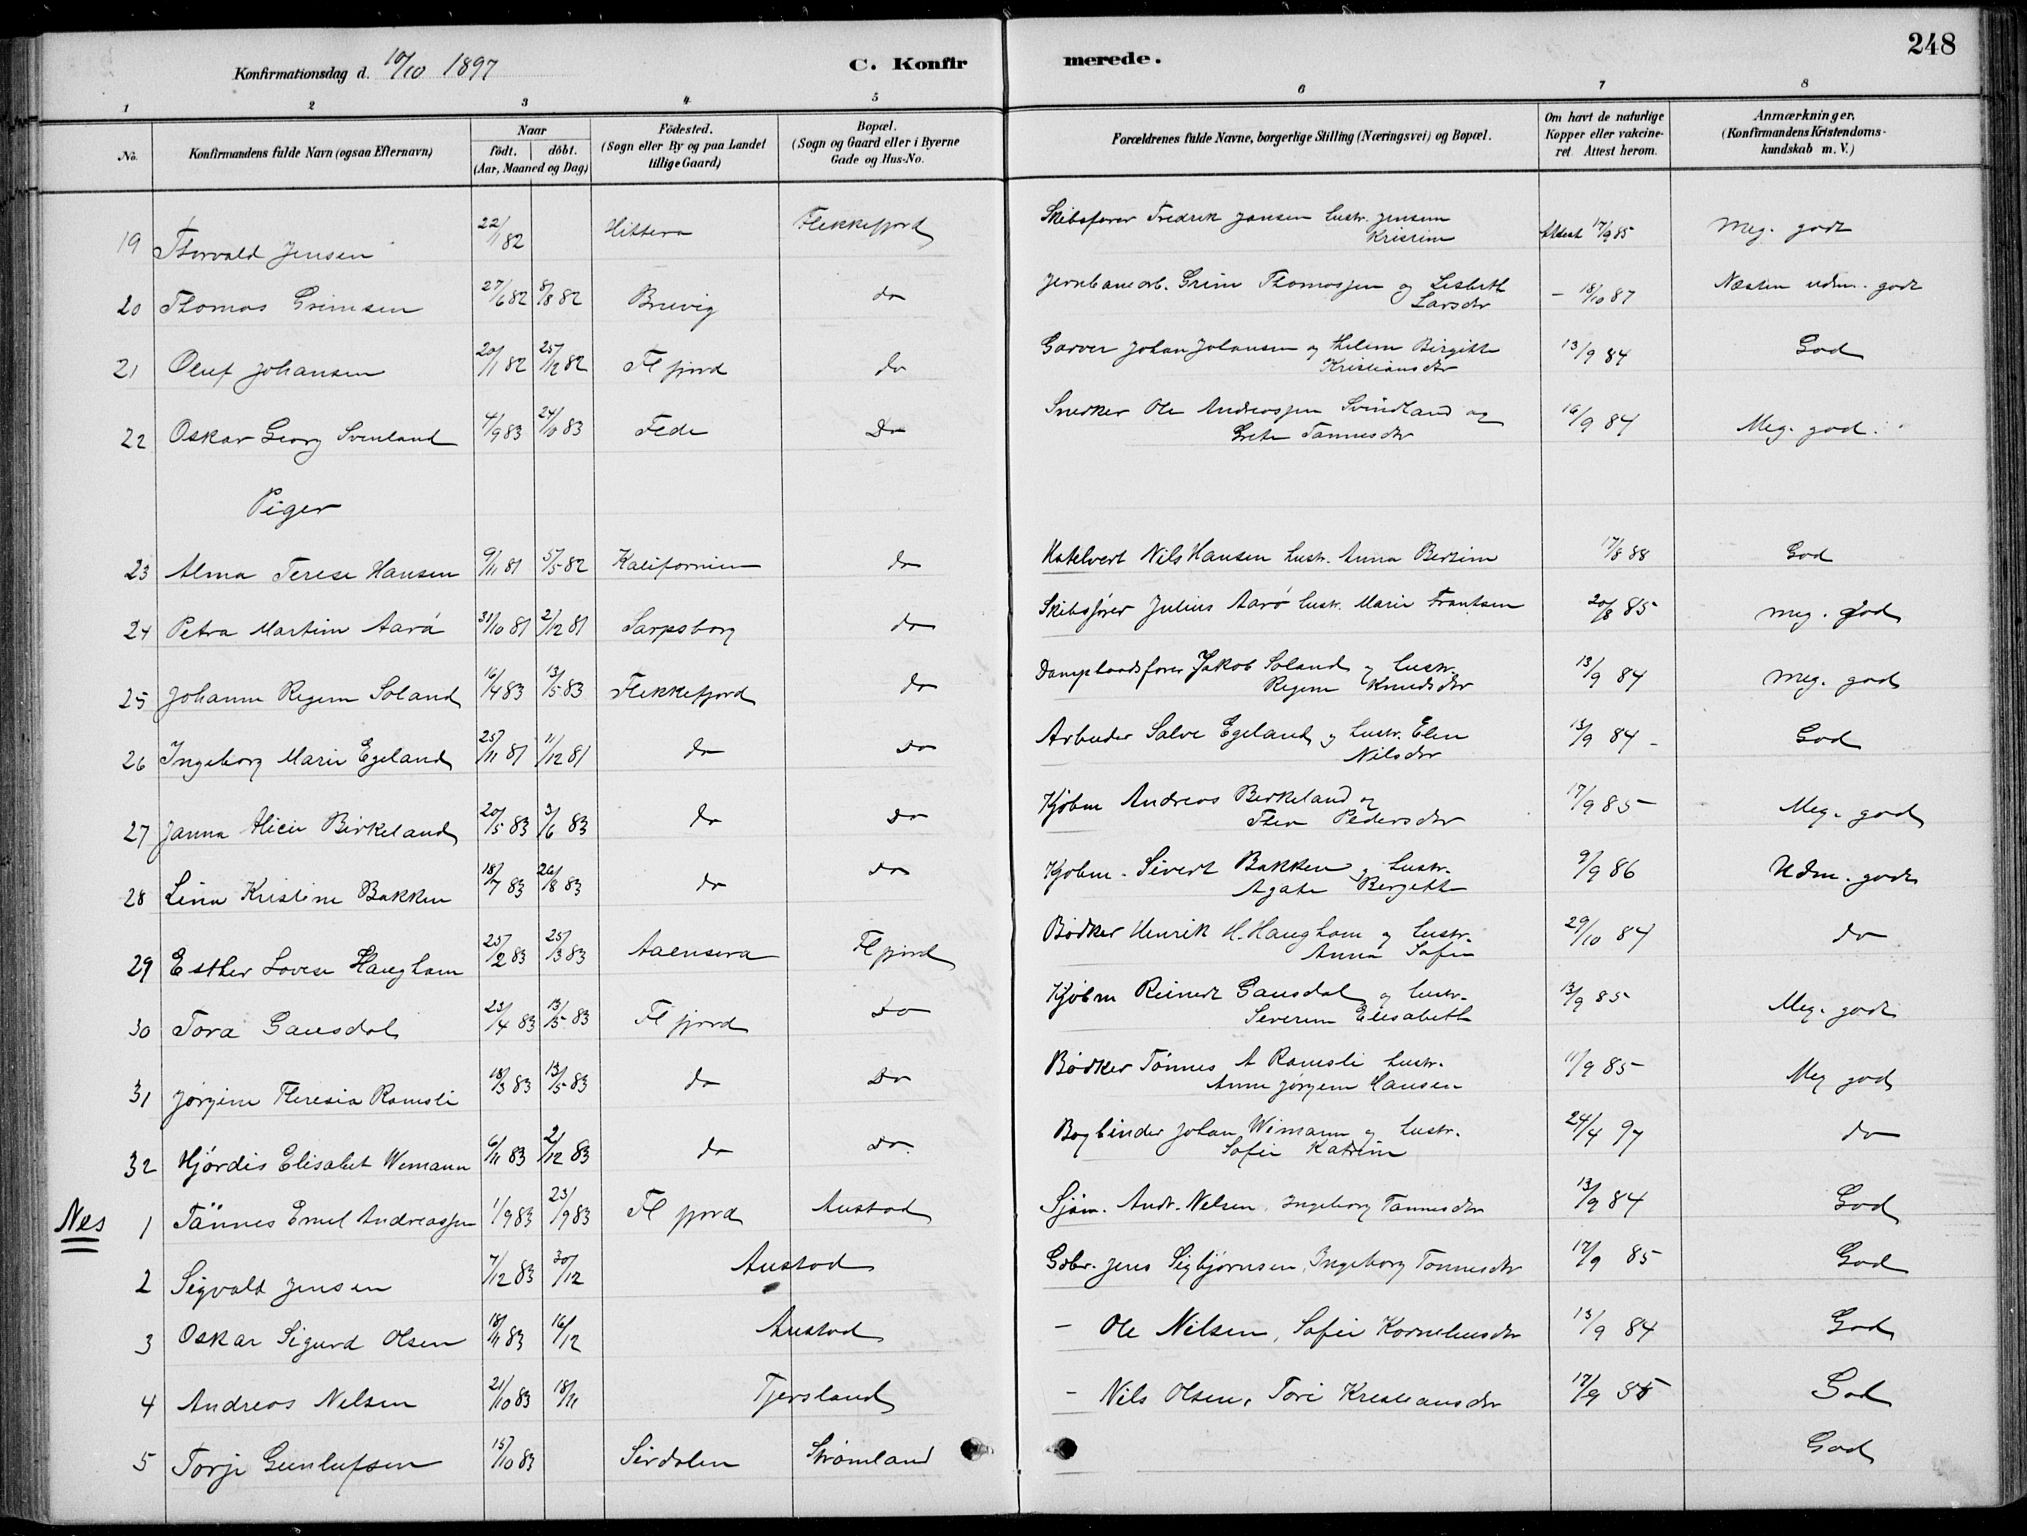 Konfirmationsdag d. 10/10 1897 C. Konfirmerede. 248
1 2 3 4 5 6 7 8
No. Konfirmandens fulde Navn (ogsaa Efternavn) Naar født. døbt. (Aar, Maaned og Dag) Fødested. (Sogn eller By og paa Landet tillige Gaard) Bopæl. (Sogn og Gaard eller i Byerne Gade og Hus-No. Forældrenes fulde Navne, borgerlige Stilling (Næringsvei) og Bopæl. Om havt de naturlige Kopper eller vakcineret Attest herom. Anmærkninger, (Konfirmandens Kristendomskundskab m. V.)
19 Thorvald Jensen 22/11 82 Hittera Flekkefjord Skibsfører Fredrik Jansen hustr. Jensine Kristine Attest 17/9 85 Meg. godt
20 Thomas Grimsen 27/6 82 8/8 82 Brevig do Jernbanearb. Grim Thomassen og Lisbeth Larsdtr — 18/10 87 Næsten udm. godt
21 Oluf Johansen 20/11 82 25/12 82 Fl fjord do Garver Johan Johansen og Helene Birgitte Kristiansdtr 13/9 84 God
22 Oskar Georg Svinland 4/9 83 24/10 83 Fede Do Snedker Ole Andreassen Svindland og Grete Tønnesdtr 16/9 84 Meg. god.
Piger
23 Alma Terese Hansen 9/11 81 5/5 82 Kalifornien do Nils Hansen hustr. Anna Bertine 17/8 88 God
24 Petra Martine Aarø 31/10 81 2/12 81 Sarpsborg do Skibsfører Julius Aarø hustr. Marie Frantsen 20/8 85 Meg. god
25 Johanne Regine Soland 16/4 83 13/5 83 Flekkefjord do Dampbaadsfører Jakob Soland og hustr. Regine Knudsdtr 13/9 84 Meg. god
26 Ingeborg Marie Egeland 25/11 81 11/12 81 do do Arbeider Salve Egeland og hustr. Elen Nilsdtr 13/9 84 God
27 Janna Alicie Birkeland 20/5 83 3/6 83 do do Kjøbm Andreas Berkeland og Thea Pedersdtr 17/9 85 Meg. god
28 Lina Kristine Bakken 18/7 83 26/8 83 do do Kjøbm. Sivert Bakken og hustr. Agate Bergitte 9/9 86 Udm. godt
29 Esther Lovise Haugham 25/2 83 25/3 83 Aaensira Fl fjord Bødker Henrik H. Haugham og hustr. Anna Sofie 29/10 84 do
30 Tora Gausdal 23/4 83 13/5 83 Fl fjord Do Kjøbm Reinert Gausdal og hustr. Severine Elisabeth 13/9 85 Meg. godt
31 Jørgine Theresia Ramsli 18/3 83 13/5 83 do Do Bødker Tønnes A Ramsli hustr. Anne Jørgine Hansen 11/9 85 Meg god
32 Hjørdis Elisabet Wimann 6/11 83 2/12 83 do Do. Bogbinder Johan Wimann og hustr. Sofie Katrine 24/4 97 do
Nes 1 Tønnes Emil Andreassen 1/9 83 23/9 83 Fl fjord Austad Sjøm. Andr. Nelsen, Ingeborg Tønnesdtr 13/9 84 God
2 Sigvald Jensen 7/12 83 30/12 Austad Gdbr. Jens Sigbjørnsen, Ingeborg Tønnesdtr 17/9 85 God
3 Oskar Sigurd Olsen 18/11 83 16/12 Austad — Ole Nilsen, Sofie Korneliusdtr 13/9 84 God
4 Andreas Nelsen 21/10 83 18/11 Tjersland — Nils Olsen, Tori Kristiansdtr 17/9 85 God
5 Torje Gunlufsen 15/10 83 Sirdalen Strømland God